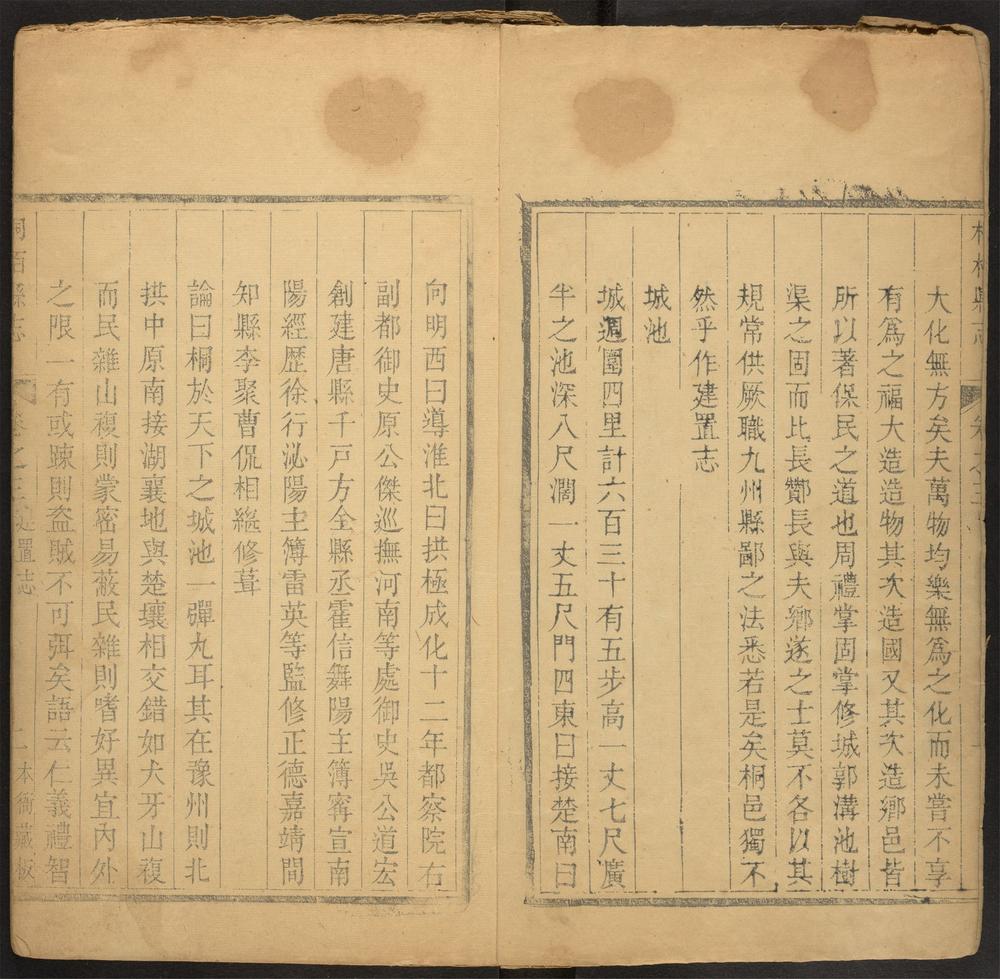 大化無方矣夫萬物均樂無爲之化而未嘗不享
有爲之福大造造物其次造國又其次造鄉邑皆
所以著保民之道也周禮掌固掌修城郭溝池樹
渠之固而比長酇長與夫鄉遂之士莫不各以其
規常供厥職九州縣鄙之法悉若是矣桐邑獨不
然乎作建置志
城池
城週圍四里計六百三十有五步高一丈七尺廣
半之池深八尺濶一丈五尺門四東曰接楚南曰
向明西曰導淮北曰拱極成化十二年都察院右
副都御史原公傑巡撫河南等處御史吳公道宏
創建唐縣千戸方全縣丞霍信舞陽主簿甯宣南
陽經歷徐行泌陽主簿雷英等監修正德嘉靖間
知縣李聚曹侃相繼修葺
論曰桐於天下之城池一彈丸耳其在豫州則北
拱中原南接湖襄地與楚壤相交錯如犬牙山複
而民雜山複則蒙密易蔽民雜則嗜好異宜內外
之限一有或踈則盜賊不可弭矣語云仁義禮智
桐栢縣志 卷之三 建置志 二 本衙藏板